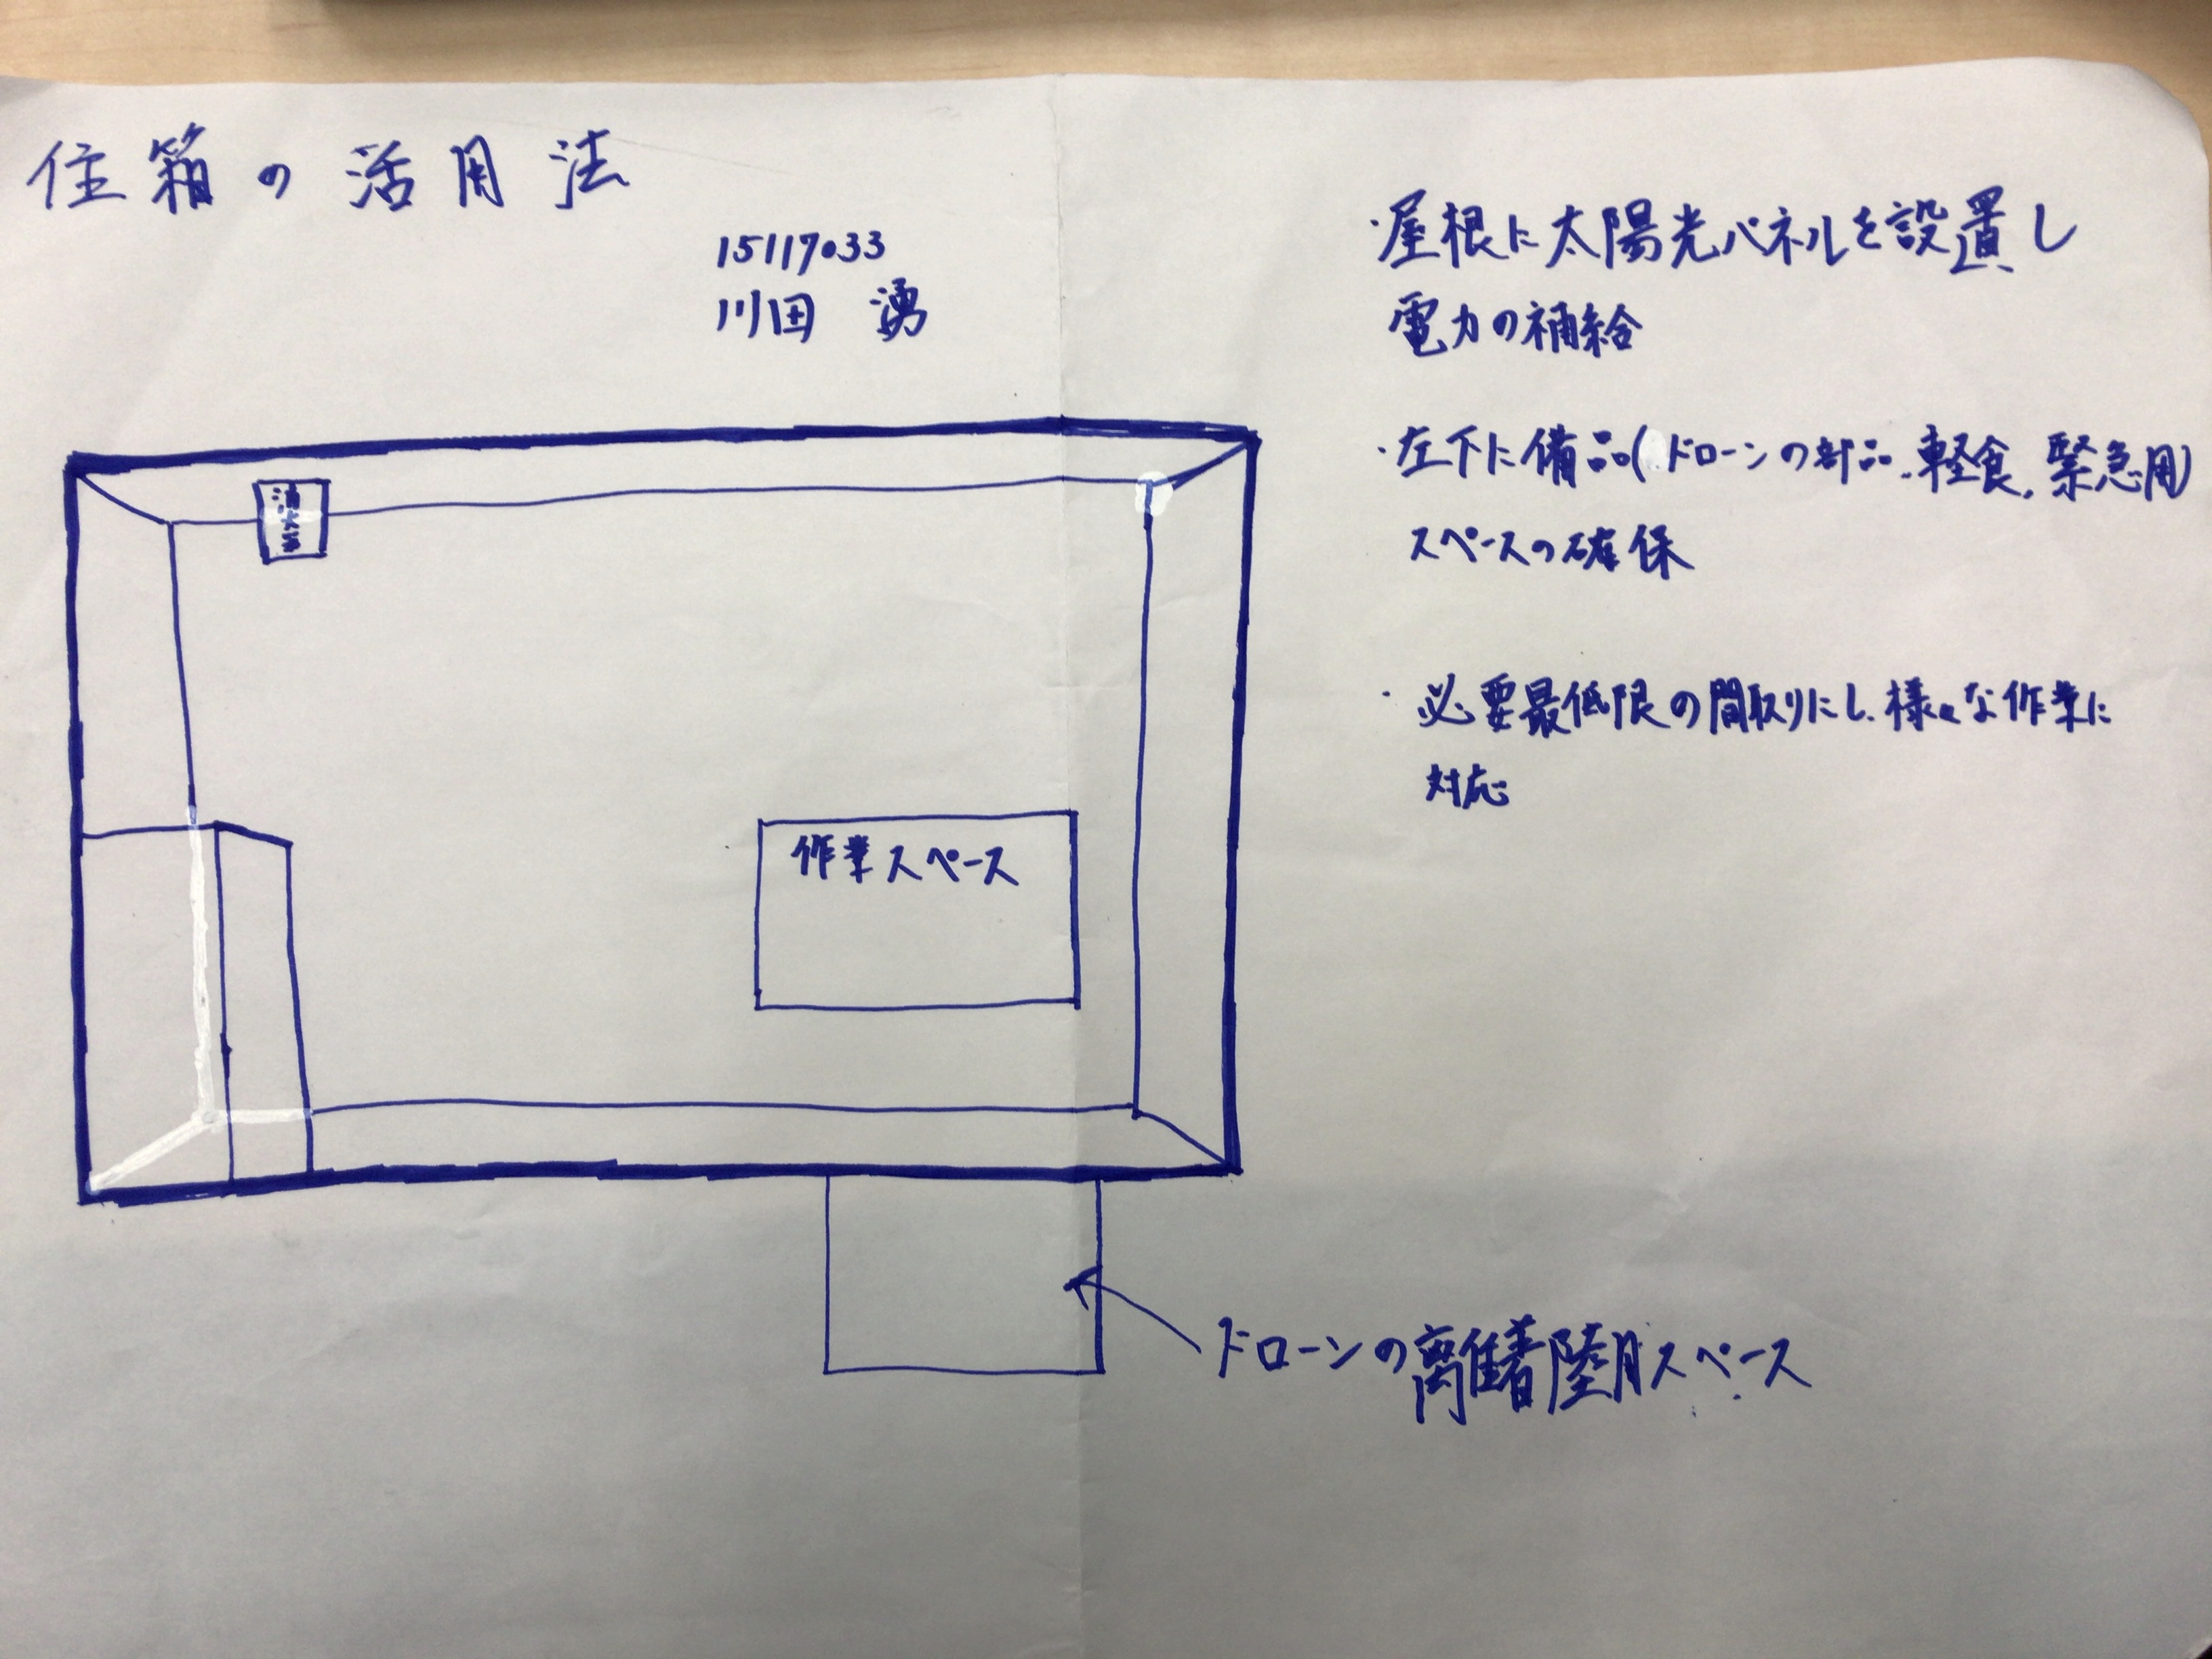 住箱の活用法
15117033
川田 湧
・屋根に太陽光パネルを設置し
電力の補給
・左下に備品(ドローンの部品、軽食、緊急用)
スペースの確保
・必要最低限の間取りにし、様々な作業に
対応
消火器
作業スペース
ドローンの離着陸用スペース